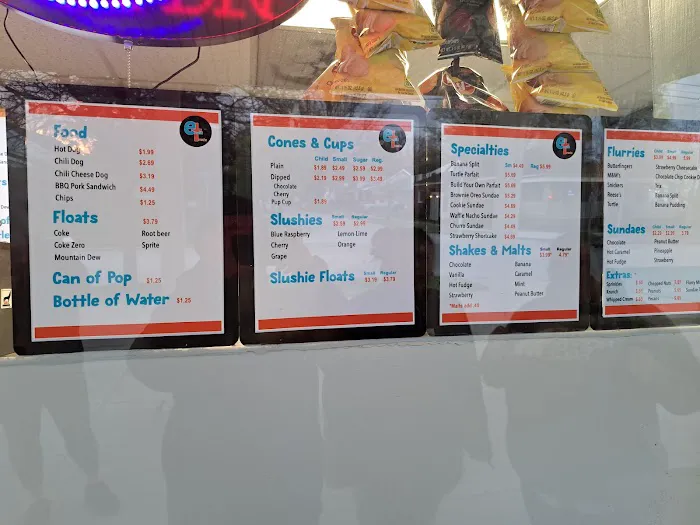 Food
Hot Dog $1.99
Chili Dog $2.69
Chili Cheese Dog $3.19
BBQ Pork Sandwich $4.49
Chips $1.25
Floats $3.79
Coke Root beer
Coke Zero Sprite
Mountain Dew
Can of Pop $1.25
Bottle of Water $1.25
Cones & Cups
Child Small Sugar Reg.
Plain $1.89 $2.49 $3.59 $2.99
Dipped $2.19 $2.99 $3.99 $3.49
Chocolate
Cherry
Pup Cup $1.89
Slushies Small Regular
$2.59 $2.95
Blue Raspberry Lemon-Lime
Cherry Orange
Grape
Slushie Floats Small Regular
$3.19 $3.79
Specialties
Banana Split Sm $4.49 Reg $5.99
Turtle Parfait
Build Your Own Parfait
Brownie Oreo Sundae
Cookie Sundae
Waffle Nacho Sundae
Churro Sundae
Strawberry Shortcake
Shakes & Malts Small Regular
Chocolate Banana
Vanilla Caramel
Hot Fudge Mint
Strawberry Peanut Butter
Flurries Child Small Regular
Butterfingers Strawberry Cheesecake
M&M's Chocolate Chip Cookie D
Snickers Trix
Reese's Banana Split
Turtle Banana Pudding
Sundaes Child Small Regular
Chocolate Peanut Butter
Hot Caramel Pineapple
Hot Fudge Strawberry
Extras
Sprinkles Chopped Nuts
Krunch Peanuts
Whipped Cream Pecans